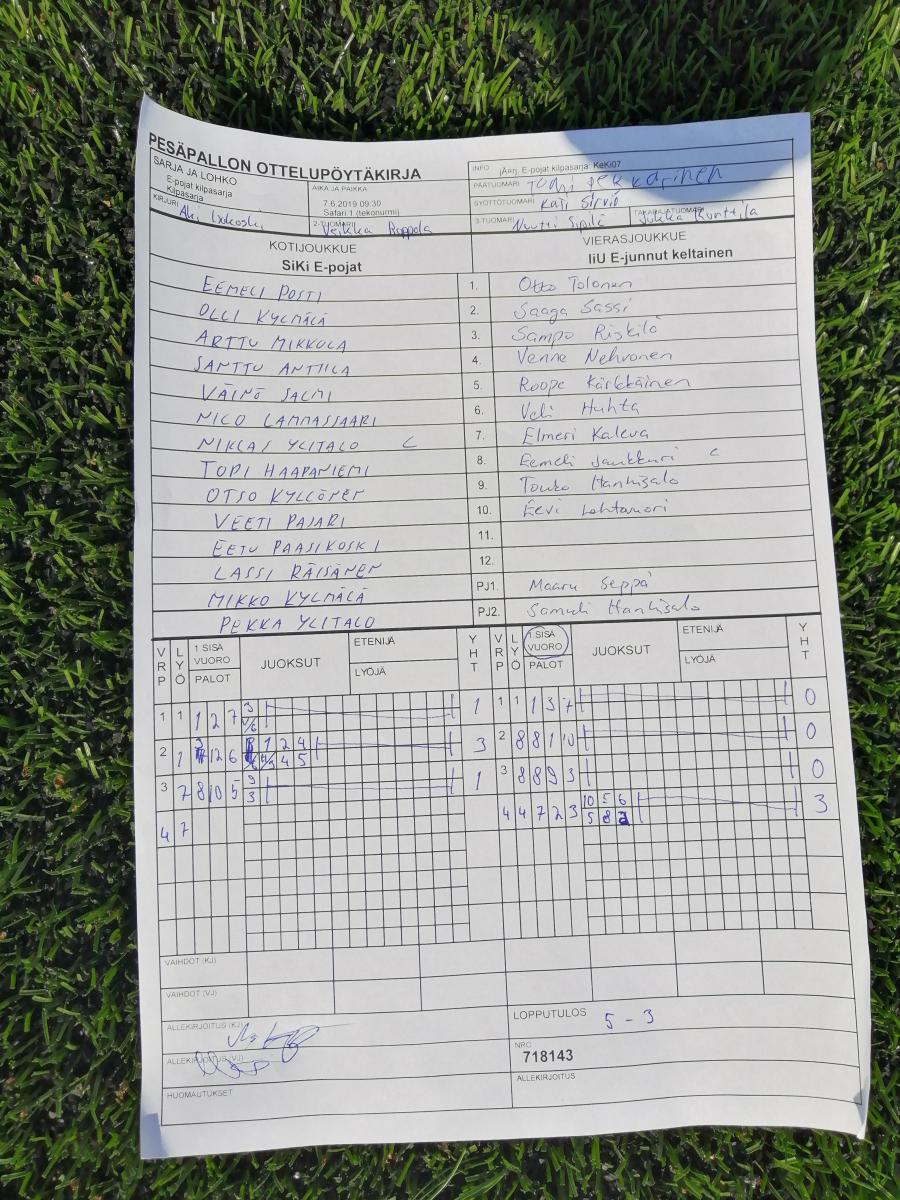 PESÄPALLON OTTELUPÖYTÄKIRJA
SARJA JA LOHKO
E-pojat kilpasarja
Kilpasarja
AIKA JA PAIKKA
7.6.2019 09:30
Safari 1 (tekonurmi)
INFO jÄarj. E-pojat kilpasarja: KeKi07
PÄÄTUOMARI Tomi Pekkarinen
SYÖTTÖTUOMARI Kari Sirviö
KIRJURI Aki
2-TUOMARI Veikka Ruppola
3-TUOMARI Nuutti Sipilä
TAKARAJATUOMARI Jukka Runttila
KOTIJOUKKUE
SiKi E-pojat
VIERASJOUKKUE
IiU E-junnut keltainen
EEMELI POSTI 1. Otto Tolonen
OLLI KYLMÄLÄ 2. Saaga Sassi
ARTTU MIKKOLA 3. Sampo Riskilä
SANTTU ANTTILA 4. Venne Nehvonen
VÄINÖ SALMI 5. Roope Kärkkäinen
NICO LAMMASSAARI 6. Veli Huhta
NIKLAS YLITALO C 7. Elmeri Kaleva
TOPI HAAPANIEMI 8. Eemeli Jaukkuri C
OTSO KYLLÖNEN 9. Touko Hanhisalo
VEETI PAJARI 10. Eevi Lohtamori
EETU PAASIKOSKI 11.
LASSI RÄISÄNEN 12.
MIKKO KYLMÄLÄ PJ1. Maaru Seppä
PEKKA YLITALO PJ2. Samuli Hanhisalo
VRP LYÖ 1 SISÄ VUORO PALOT JUOKSUT ETENIJÄ LYÖJÄ YHT VRP LYÖ 1 SISÄ VUORO PALOT JUOKSUT ETENIJÄ LYÖJÄ YHT
1 1 1 2 7 3 1 1 1 1 3 7 0
2 1 12 6 1 2 4 3 2 8 8 1 10 0
4 5
3 7 8 10 5 9 1 3 8 8 9 3 0
3
4 7 4 4 7 2 3 10 5 6 3
5 8
VAIHDOT (KJ)
VAIHDOT (VJ)
ALLEKIRJOITUS (KJ)
LOPPUTULOS 5 - 3
ALLEKIRJOITUS (VJ)
NRO
718143
HUOMAUTUKSET
ALLEKIRJOITUS